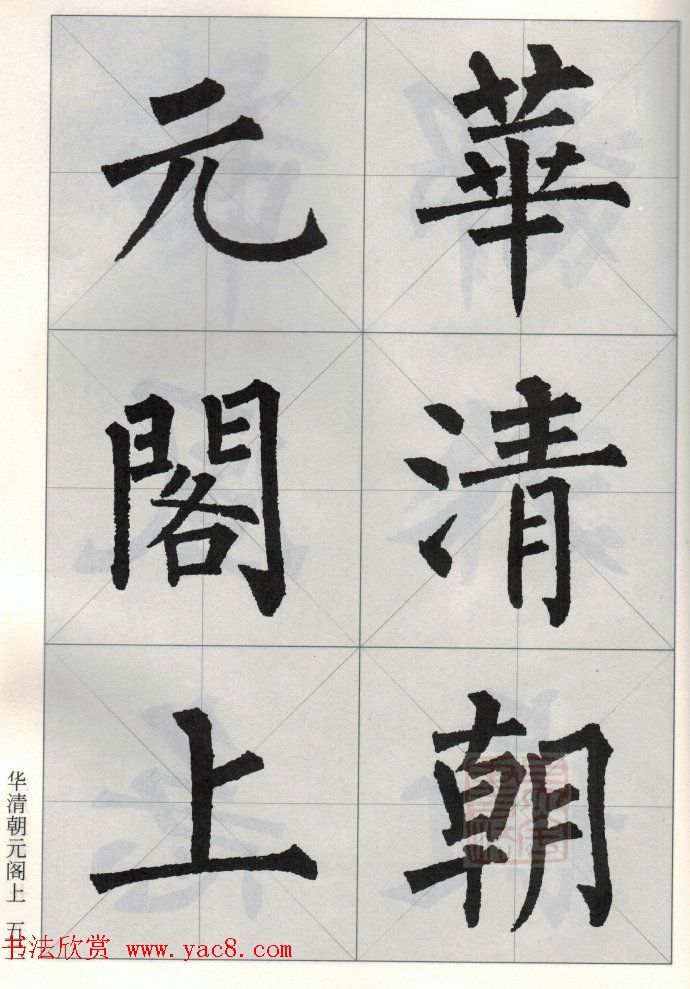 華清朝
元閣上
华清朝元阁上
书法欣赏 www.yac8.com